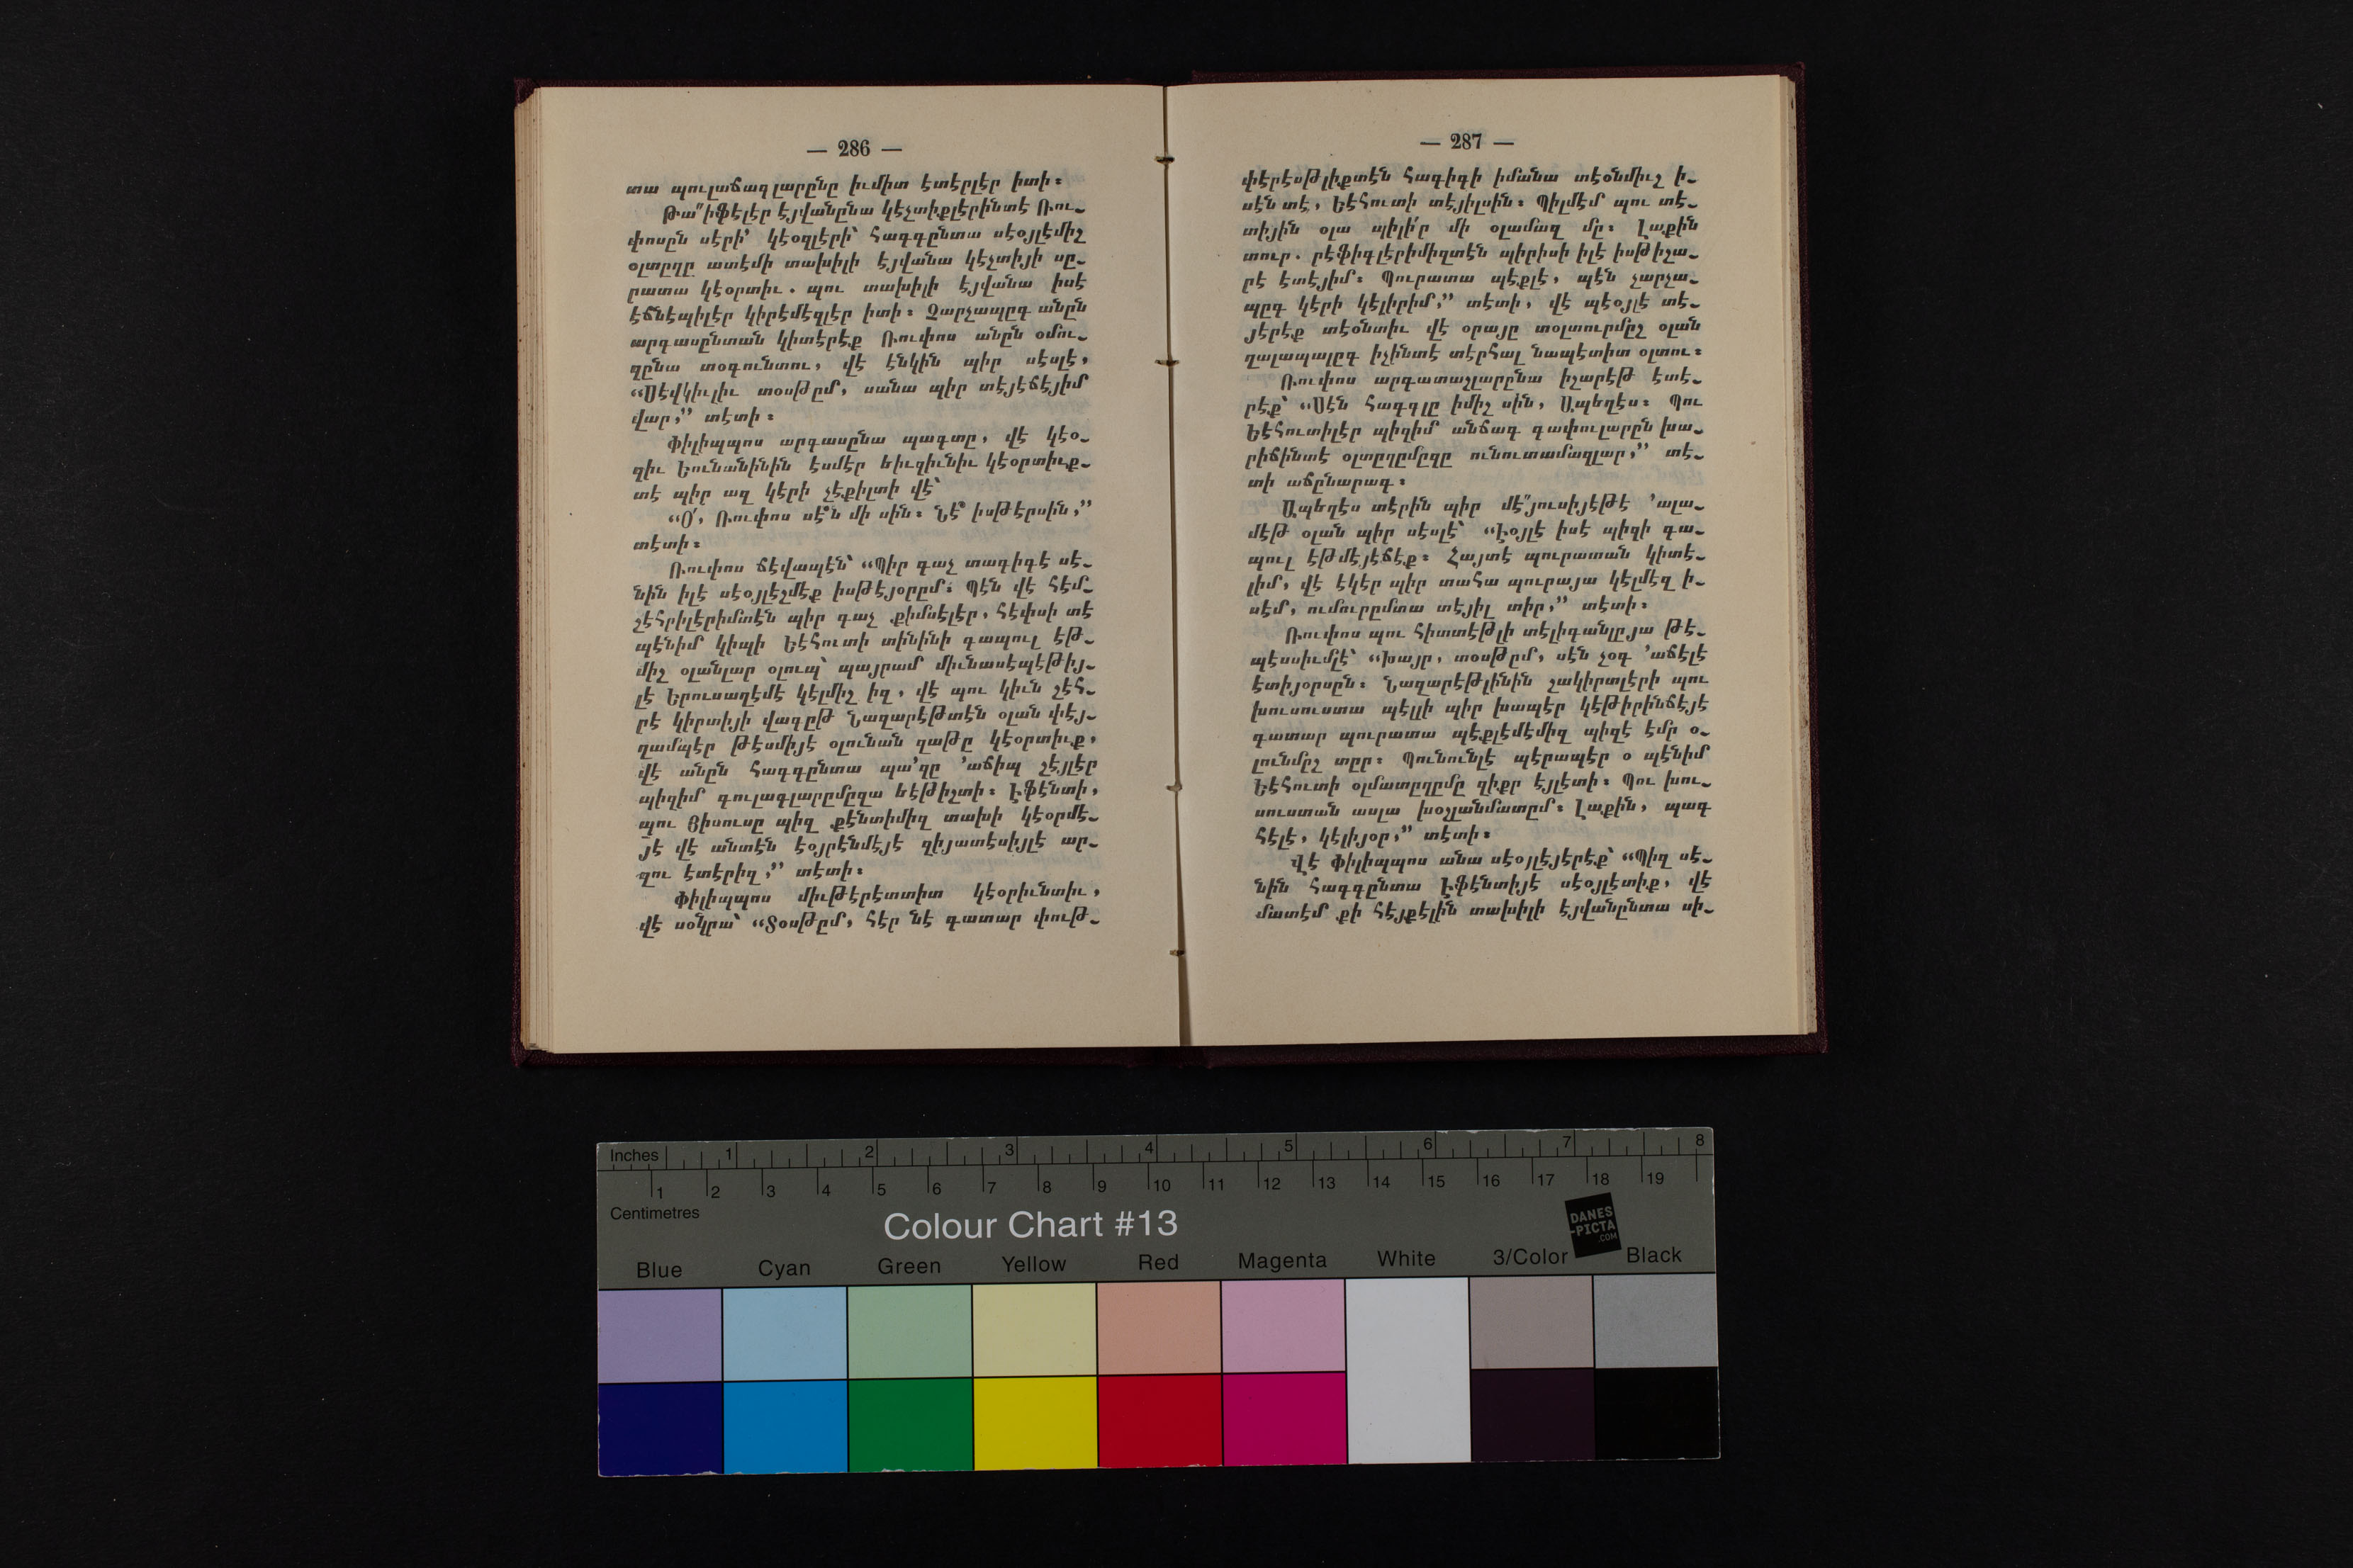 — 286 —
տա պուլաճագլարընը իւմիտ էտէրլէր իտի։
Թա՞իֆէլէր էյվանընա կէչտիքլէրինտէ Ռու֊
փոսըն սէրի՚ կէօզլէրի՝ հագգընտա սէօյլէմիշ
օլտըղը ատէմի տախիլի էյվանա կէչտիյի սը֊
րատա կէօրտիւ. պու տախիլի էյվանա իսէ
էճնէպիլէր կիրէմէզլէր իտի։ Չարչապըգ անըն
արգասընտան կիտէրէք Ռուփոս անըն օմու֊
զընա տօգունտու, վէ էնկին պիր սէսլէ,
“Սէվկիւլիւ տօսթըմ, սանա պիր տէյէճէյիմ
վար,” տէտի։
Փիլիպպոս արգասընա պագտը, վէ կէօ֊
զիւ Եունանինին էսմէր եիւզիւնիւ կէօրտիւք֊
տէ պիր ազ կէրի չէքիլտի վէ՝
“Օ՛, Ռուփոս սէ՞ն մի սին։ Նէ՞ իսթէրսին,”
տէտի։
Ռուփոս ճէվապէն՝ “Պիր գաչ տագիգէ սէ֊
նին իլէ սէօյլէշմէք իսթէյօրըմ։ Պէն վէ հէմ֊
շէհրիլէրիմտէն պիր գաչ քիմսէլէր, հէփսի տէ
պէնիմ կիպի Եէհուտի տինինի գապուլ էթ֊
միշ օլանլար օլուպ՝ պայրամ միւնասէպէթիյ֊
լէ Երուսաղէմէ կէլմիշ իզ, վէ պու կիւն շէհ֊
րէ կիրտիյի վագըթ Նազարէթտէն օլան փէյ֊
ղամպէր թէսմիյէ օլունան զաթը կէօրտիւք,
վէ անըն հագգընտա պա՚զը ՚աճիպ շէյլէր
պիզիմ գուլագլարըմըզա եէթիշտի։ Էֆէնտի,
պու Յիսուսը պիզ քէնտիմիզ տախի կէօրմէ֊
յէ վէ անտէն էօյրէնմէյէ զիյատէսիյլէ ար֊
զու էտէրիզ,” տէտի։
Փիլիպպոս միւթէրէտտիտ կէօրիւնտիւ,
վէ սօնրա՝ “Տօսթըմ, հէր նէ գատար փութ֊
— 287 —
փէրէսթլիքտէն հագիգի իմանա տէօնմիւշ ի֊
սէն տէ, Եէհուտի տէյիլսին։ Պիլմէմ պու տէ֊
տիյին օլա պիլի՛ր մի օլամազ մը։ Լաքին
տուր. րէֆիգլէրիմիզտէն պիրիսի իլէ իսթիշա֊
րէ էտէյիմ։ Պուրատա պէքլէ, պէն չարչա֊
պըգ կէրի կէլիրիմ,” տէտի, վէ պէօյլէ տէ֊
յէրէք տէօնտիւ վէ օրայը տօլտուրմըշ օլան
ղալապալըգ իչինտէ տէրհալ նապէտիտ օլտու։
Ռուփոս արգատաշլարընա իշարէթ էտէ֊
րէք՝ “Սէն հագգլը իմիշ սին, Ապեղէս։ Պու
Եէհուտիլէր պիզիմ անճագ գափուլարըն խա֊
րիճինտէ օլտըղըմըզը ունուտամազլար,” տէ֊
տի աճընարագ։
Ապեղէս տէրին պիր մէ՞յուսիյէթէ ՚ալա֊
մէթ օլան պիր սէսլէ՝ “Էօյլէ իսէ պիզի գա֊
պուլ էթմէյէճէք։ Հայտէ պուրատան կիտէ֊
լիմ, վէ էկէր պիր տահա պուրայա կէլմէզ ի֊
սէմ, ումուրըմտա տէյիլ տիր,” տէտի։
Ռուփոս պու հիտտէթլի տէլիգանլըյա թէ֊
պէսսիւմլէ՝ “Խայր, տօսթըմ, սէն չօգ ՚աճէլէ
էտիյօրսըն։ Նազարէթլինին շակիրտլէրի պու
խուսուստա պէլլի պիր խապէր կէթիրինճէյէ
գատար պուրատա պէքլէմէմիզ պիզէ էմր օ֊
լունմըշ տըր։ Պունունլէ պէրապէր օ պէնիմ
Եէհուտի օլմատըղըմը զիքր էյլէտի։ Պու խու֊
սուստան ասլա խօշլանմատըմ։ Լաքին, պագ
հէլէ, կէլիյօր,” տէտի։
Վէ Փիլիպպոս անա սէօյլէյէրէք՝ “Պիզ սէ֊
նին հագգընտա Էֆէնտիյէ սէօյլէտիք, վէ
մատէմ քի հէյքէլին տախիլի էյվանընտա սի֊
Inches 1 2 3 4 5 6 7 8
1 2 3 4 5 6 7 8 9 10 11 12 13 14 15 16 17 18 19
Centimetres
Colour Chart #13
DANES
-PICTA
.COM
Blue Cyan Green Yellow Red Magenta White 3/Color Black